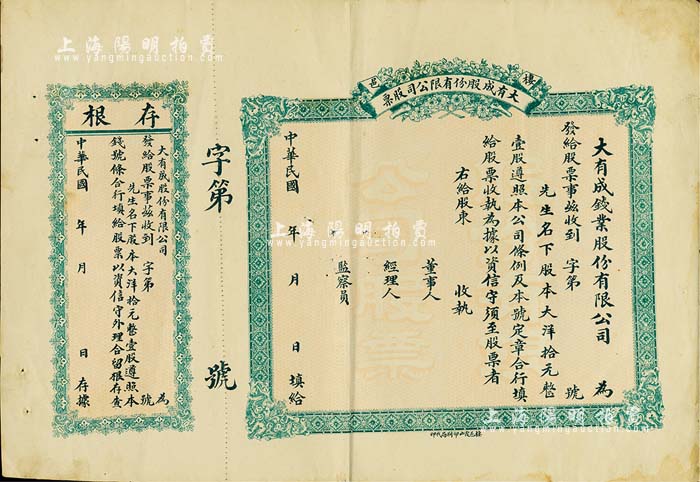 上海陽明拍賣
www.yangmingauction.com
樓邑
大有成股份有限公司股票
大有成錢業股份有限公司 為
發給股票事茲收到 字第 號
先生名下股本大洋拾元整
壹股遵照本公司條例及本號定章合行填
給股票收執為據以資信守須至股票者
右給股東 收執
董事人
經理人
監察員
中華民國 年 月 日填給
公司股票
字第 號
存根
大有成股份有限公司 為
發給股票事茲收到 字第 號
先生名下股本大洋拾元整壹股遵照本
錢號條合行填給股票以資信守外理合留根存查
中華民國 年 月 日存據
上海陽明拍賣
www.yangmingauction.com
上海陽明拍賣
www.yangmingauction.com